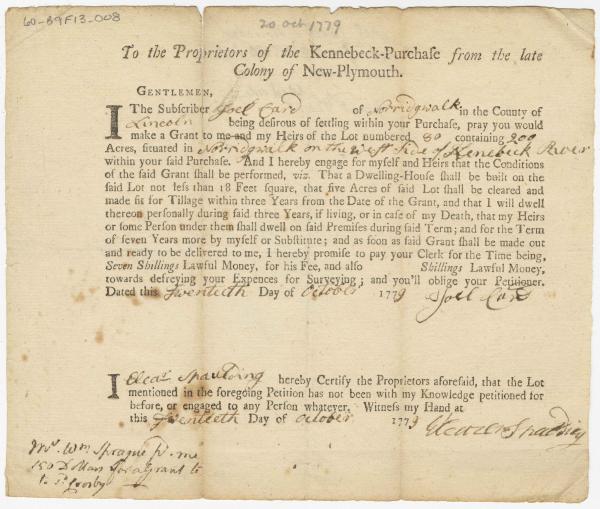 60-B9F13-008
20 Oct 1779
To the Proprietors of the Kennebeck-Purchaſe from the late
Colony of New-Plymouth.
GENTLEMEN,
I The Subſcriber Joel Card of Norridgwalk in the County of
Lincoln being deſirous of ſettling within your Purchaſe, pray you would
make a Grant to me and my Heirs of the Lot numbered 80 containing 200
Acres, ſituated in Norridgwalk on the West Side of Kenebeck River
within your ſaid Purchaſe. And I hereby engage for myſelf and Heirs that the Conditions
of the ſaid Grant ſhall be performed, viz. That a Dwelling-Houſe ſhall be built on the
ſaid Lot not leſs than 18 Feet ſquare, that five Acres of ſaid Lot ſhall be cleared and
made fit for Tillage within three Years from the Date of the Grant, and that I will dwell
thereon perſonally during ſaid three Years, if living, or in caſe of my Death, that my Heirs
or ſome Perſon under them ſhall dwell on ſaid Premiſes during ſaid Term; and for the Term
of ſeven Years more by myſelf or Subſtitute; and as ſoon as ſaid Grant ſhall be made out
and ready to be delivered to me, I hereby promiſe to pay your Clerk for the Time being,
Seven Shillings Lawful Money, for his Fee, and alſo Shillings Lawful Money,
towards defreying your Expences for Surveying; and you'll oblige your Petitioner.
Dated this Twentieth Day of October 1779 Joel Card
I Eleazr Spaulding hereby Certify the Proprietors aforeſaid, that the Lot
mentioned in the foregoing Petition has not been with my Knowledge petitioned for
before, or engaged to any Perſon whatever. Witneſs my Hand at
this Twentieth Day of October 1779 Eleazer Spaulding
Mr. Wm Sprague pd. me
150 Dollars for a Grant to